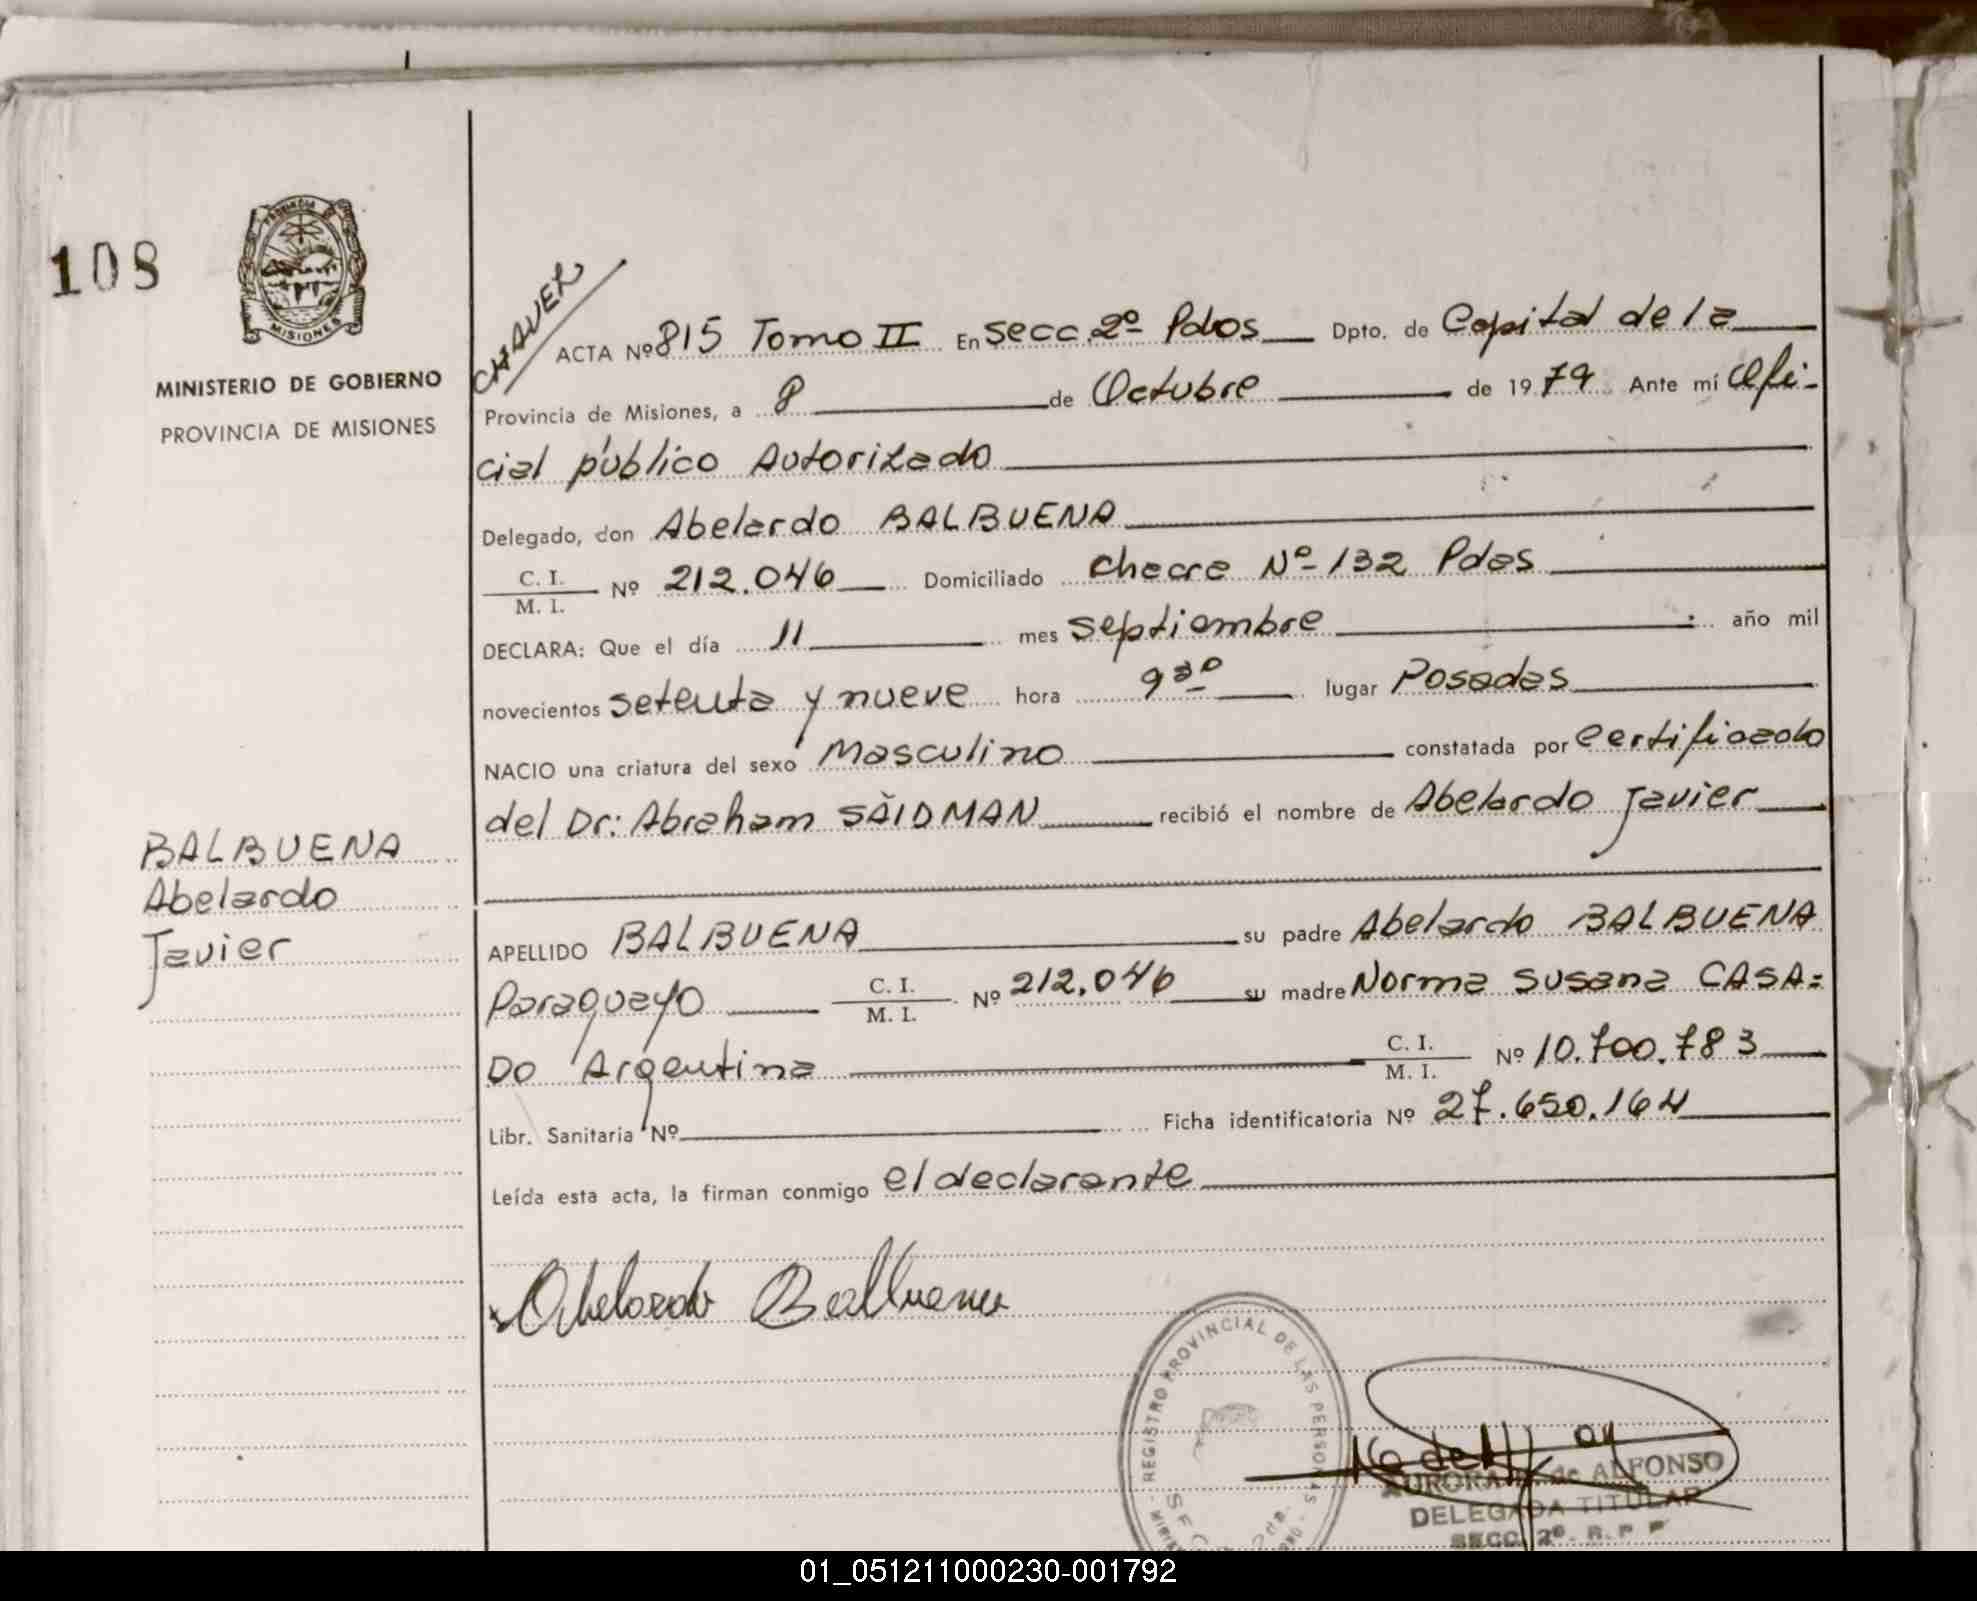 108
PROVINCIA DE
MISIONES
MINISTERIO DE GOBIERNO
PROVINCIA DE MISIONES
CHAVEZ
ACTA Nº 815 Tomo II En Secc. 2º Pdas Dpto. de Capital de la
Provincia de Misiones, a 8 de Octubre de 1979 Ante mí Ofi-
cial público Autorizado
Delegado, don Abelardo BALBUENA
C. I.
M. I. Nº 212.046 Domiciliado Checre Nº 132 Pdas
DECLARA: Que el día 11 mes septiembre año mil
novecientos setenta y nueve hora 9 30 lugar Posadas
NACIO una criatura del sexo Masculino constatada por Certificado
del Dr: Abraham SAIDMAN recibió el nombre de Abelardo Javier
BALBUENA
Abelardo
Javier
APELLIDO BALBUENA su padre Abelardo BALBUENA
Paraguayo C. I.
M. I. Nº 212.046 su madre Norma Susana CASA=
DO Argentina C. I.
M. I. Nº 10.700.783
Libr. Sanitaria Nº Ficha identificatoria Nº 27.650.164
Leída esta acta, la firman conmigo el declarante
Abelardo Balbuena
REGISTRO PROVINCIAL DE LAS PERSONAS
AURORA de ALFONSO
DELEGADA TITULAR
SECC. 2ª. R. P. P
01_051211000230-001792